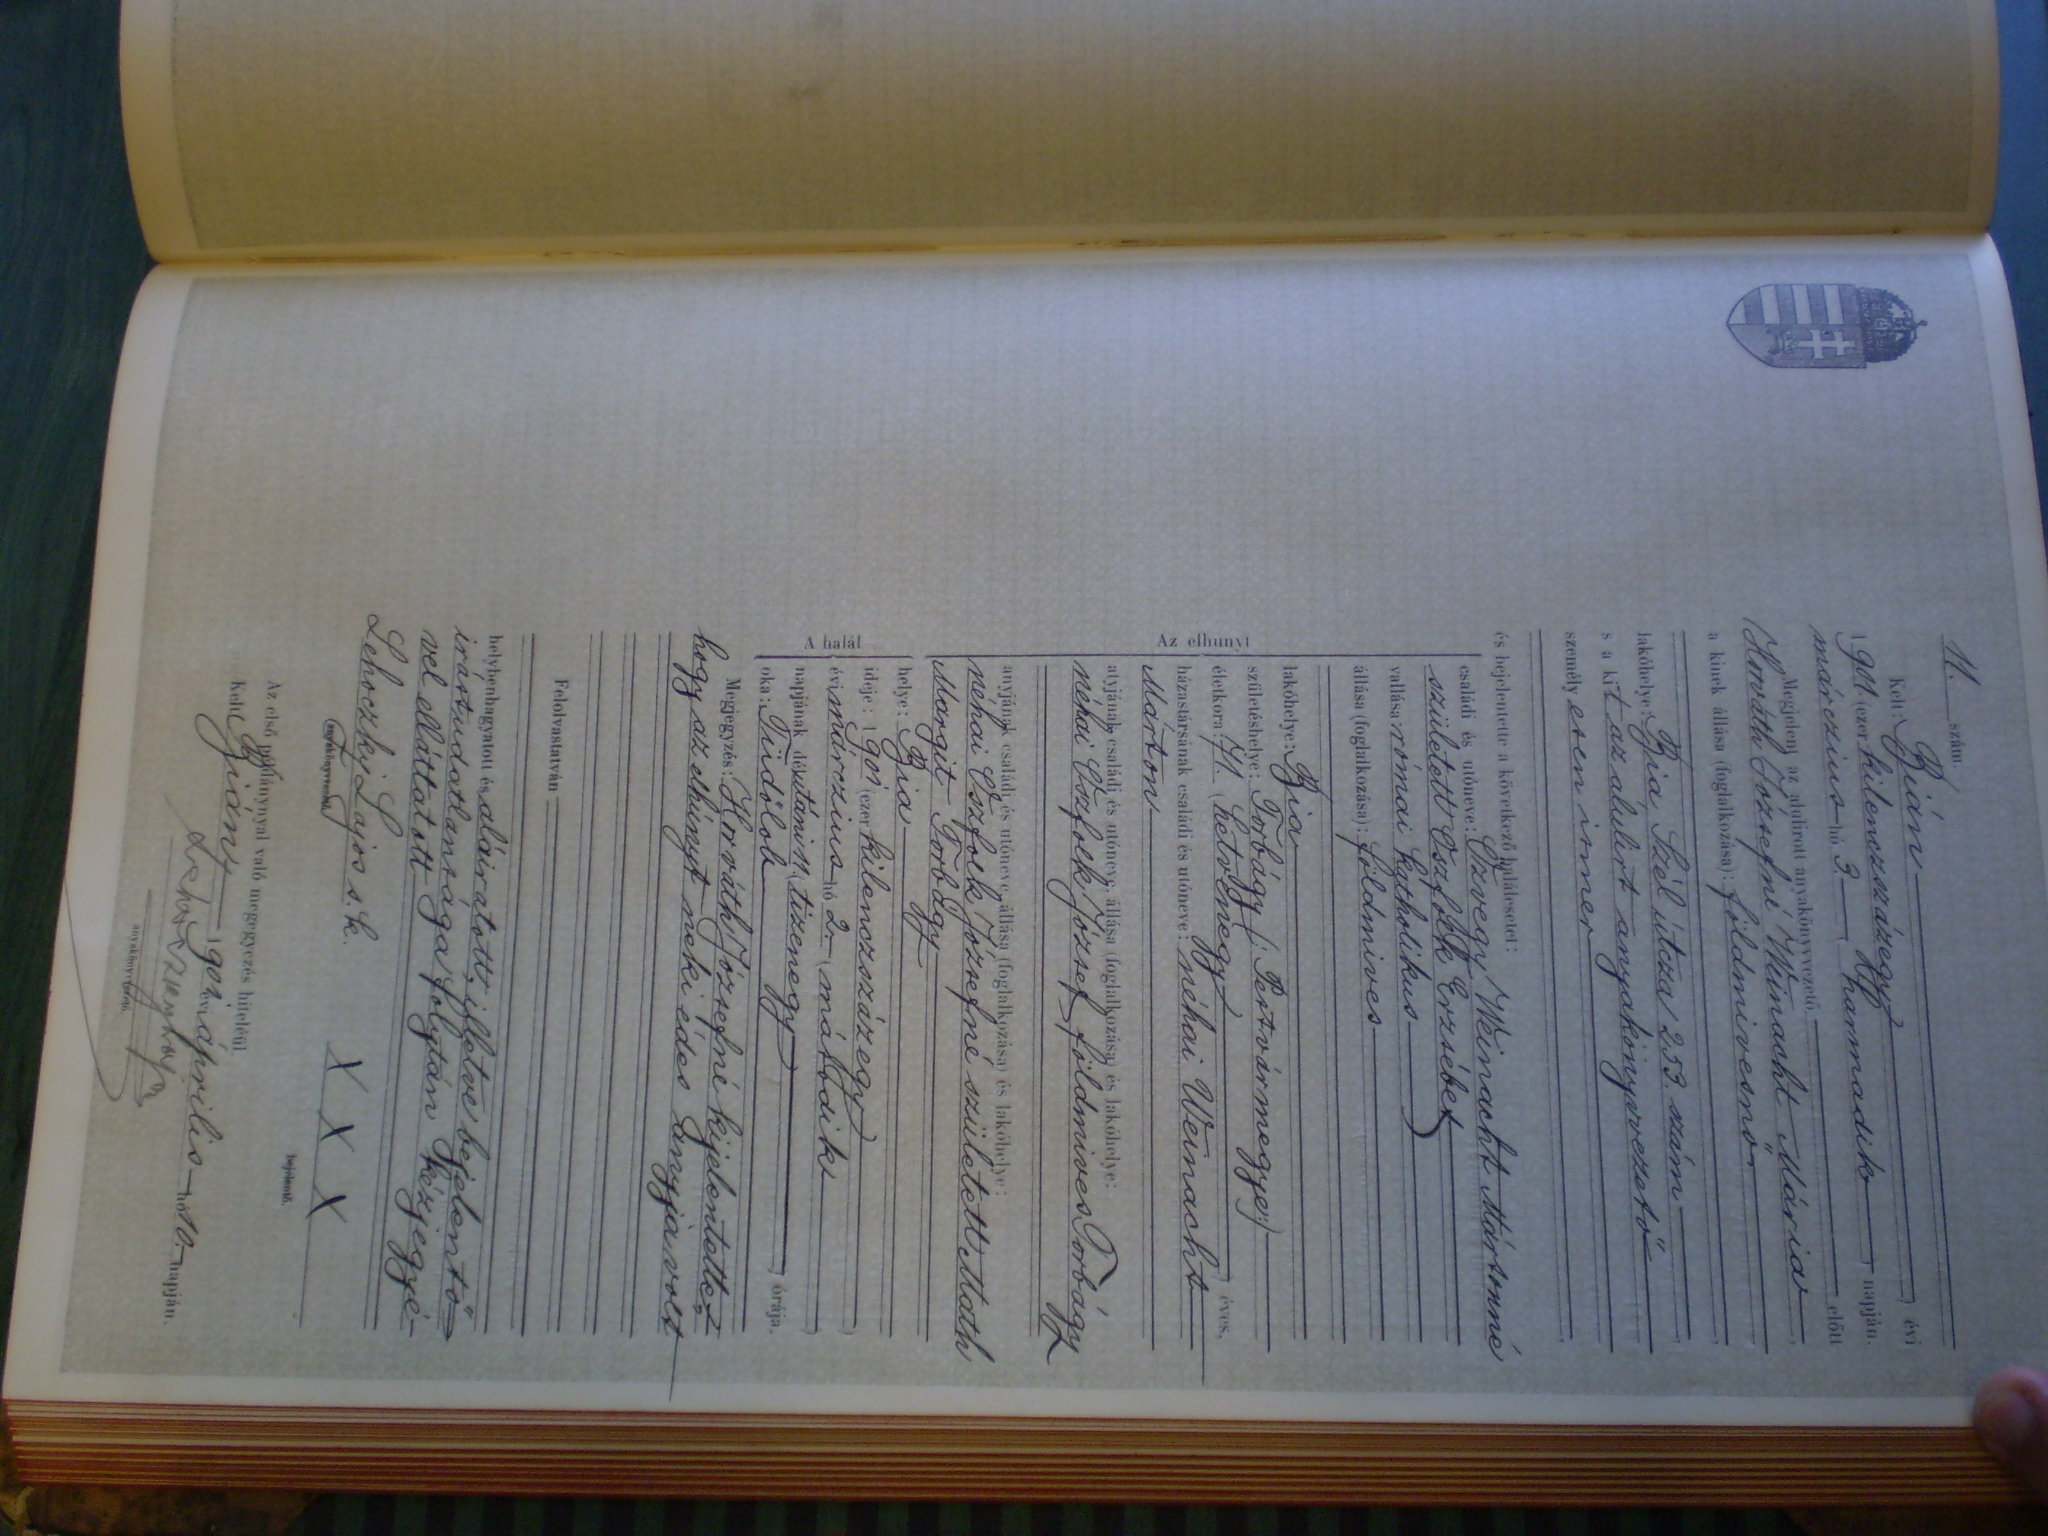 11. szám.
Kelt: Bián 1901 (ezer kilenczszázegy) évi
márczius hó 3. (harmadik) napján.
Megjelent az alulirott anyakönyvvezető előtt
Horváth Józsefné Weinacht Mária,
a kinek állása (foglalkozása): földmivesnő
lakóhelye: Bia Szél útcza 253. szám
s a kit az alulirt anyakönyvvezető
személyesen ismer
és bejelentette a következő halálesetet:
Az elhunyt
családi és utóneve: Özvegy Weinacht Mártonné
született Őszfolk Erzsébet
vallása: római katholikus
állása (foglalkozása): földmives
lakóhelye: Bia
születéshelye: Torbágy (: Pestvármegye:)
életkora: 71. (hetvenegy) éves,
házastársának családi és utóneve: néhai Weinacht
Márton
atyjának családi és utóneve, állása (foglalkozása) és lakóhelye:
néhai Őszfolk József, földmives Torbágy
anyjának családi és utóneve, állása (foglalkozása) és lakóhelye:
néhai Őszfolk Józsefné született
Margit Torbágy
A halál
helye: Bia
ideje: 1901 (ezer kilenczszázegy)
évi márczius hó 2. (második
napjának délutáni 11. (tizenegy) órája.
oka: Tüdőlob
Megjegyzés: Horváth Józsefné kijelentette,
hogy az elhúnyt neki édes anyja volt
Felolvastatván
helybenhagyatott és aláiratott, illetve bejelentő
irástudatlansága folytán kézjegyé-
vel elláttatott
Lehoczky Lajos s. k. X X X
anyakönyvvezető. bejelentő.
Az első példánynyal való megegyezés hiteléül
Kelt: Biány 1901 évi április hó 10 napján.